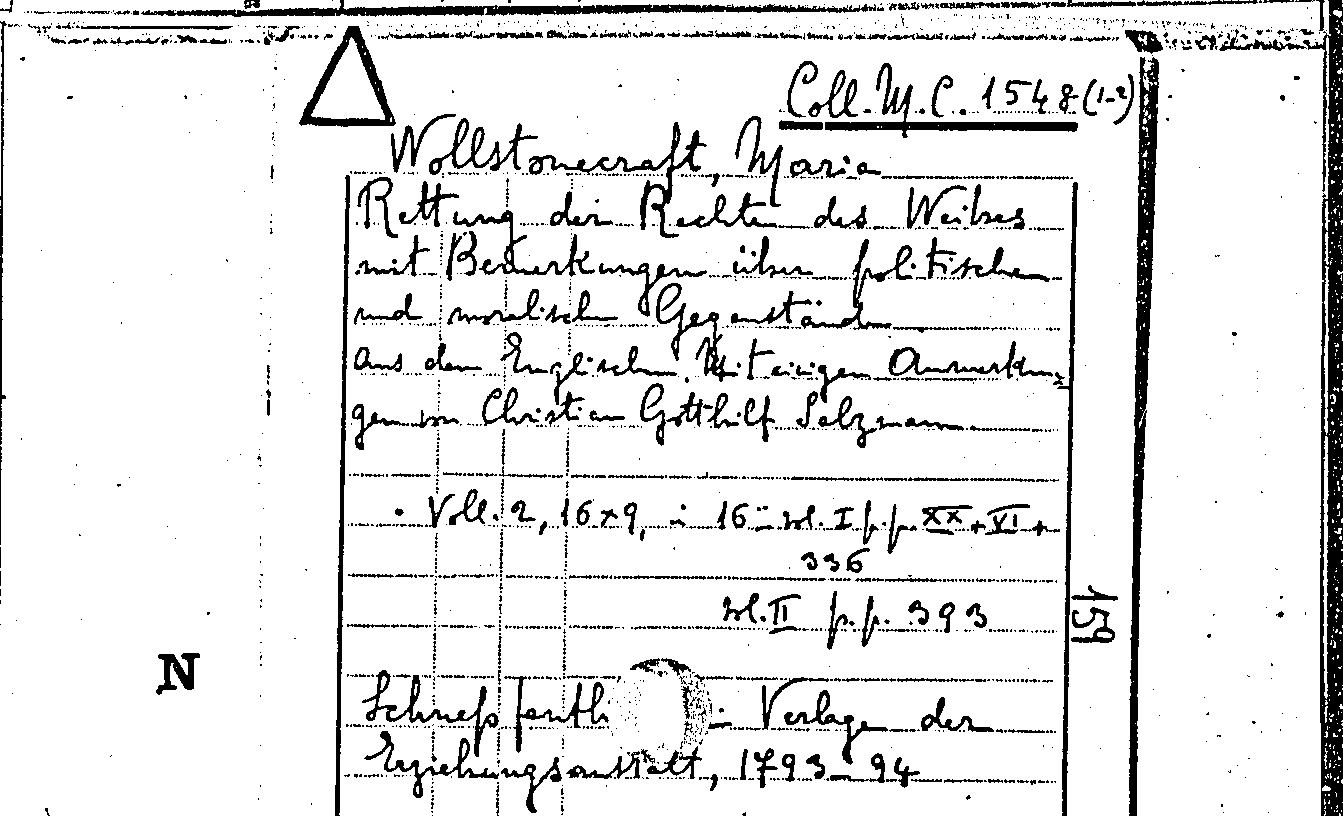 Coll. M. C. 1548 (1-2)
Wollstonecraft, Maria
Rettung der Rechte des Weibes
mit Bemerkungen über politische
und moralische Gegenstände
aus dem Englischen. Mit einigen Anmerkun=
gen von Christian Gotthilf Salzmann.
· Voll. 2, 16x9, in 16° vol. I p.p. XX+VI+
336
vol. II p.p. 393
159
N
Schnepfenth in Verlage der
Erziehungsanstalt, 1793-94